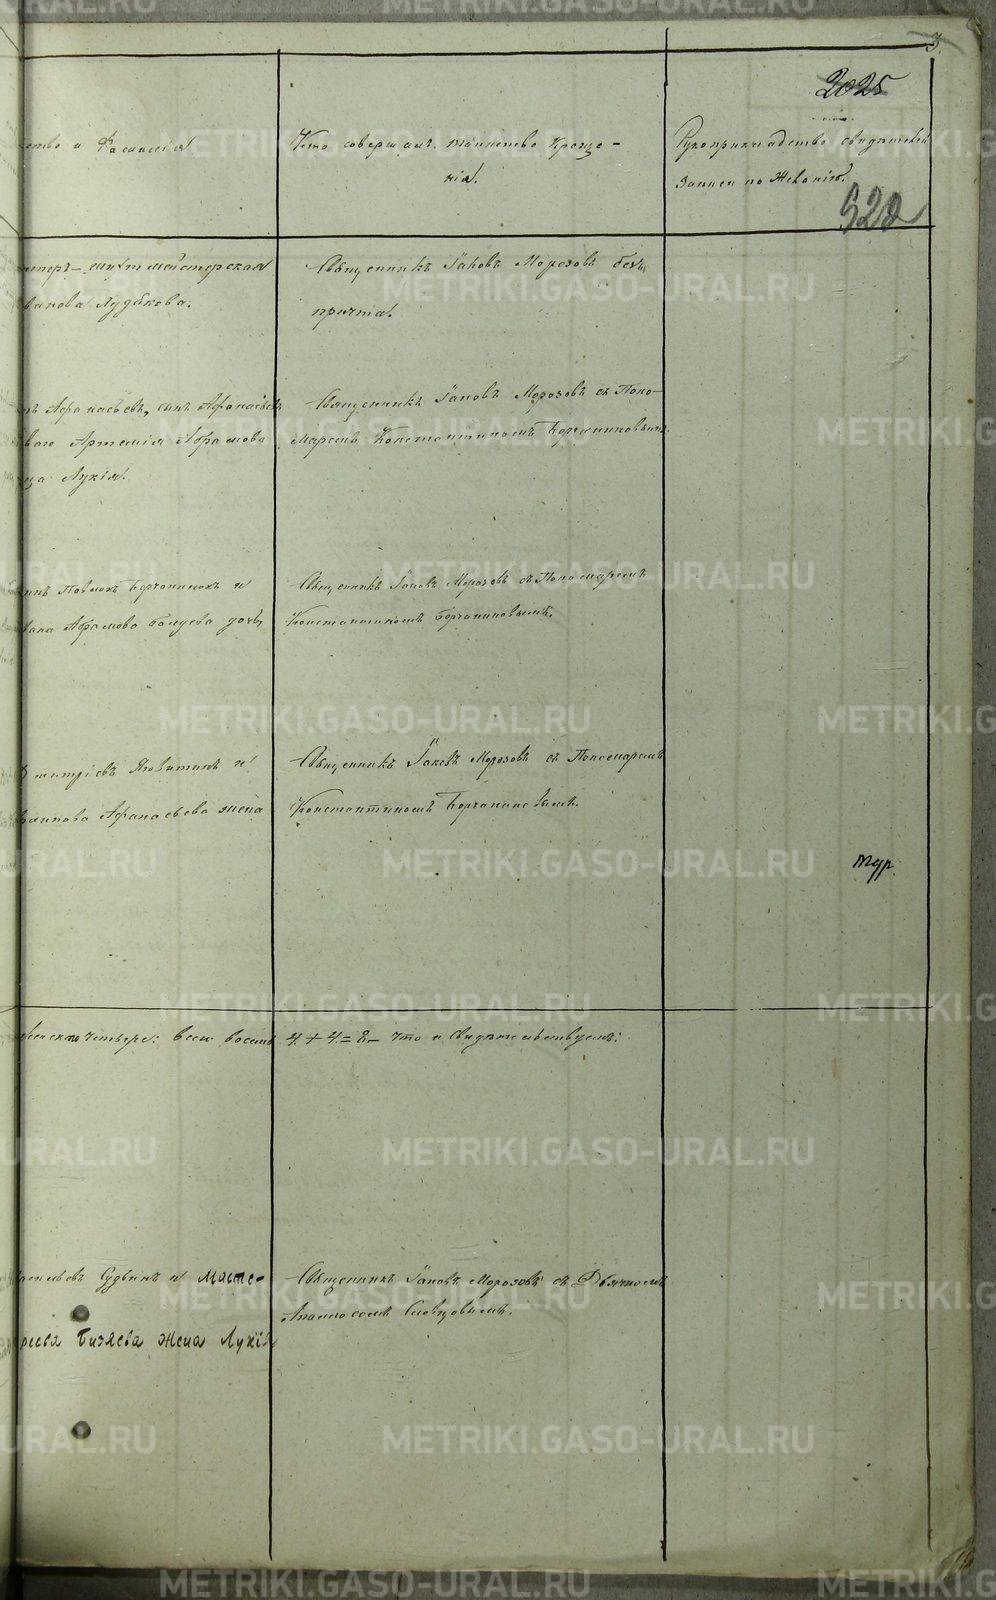 3.
2025
522
ство и Фамилія
Кто совершалъ таинство Креще-
нія.
Рукоприкладство свидѣтелей
записи по Желанію.
теръ-шихтмейстерская
ванова Лудьнова.
Священникъ Іаковъ Морозовъ безъ
причта.
Афанасьевъ, сынъ Афанасьевъ
Артемія Абрамова
Лукія.
Священникъ Іаковъ Морозовъ съ Поно-
маремъ Константиномъ Борчаниновымъ.
и
вана Абрамова дочь
Священникъ Іаковъ Морозовъ съ Пономаремъ
Константиномъ Борчаниновымъ.
митріевъ и
Афанасьева жена
Священникъ Іаковъ Морозовъ съ Пономаремъ
Константиномъ Борчаниновымъ.
тур
женска четыре: всего восемь 4 + 4 = 8 – что и свидѣтельствуемъ:
сильевъ и Масте-
Бизяева жена Лукія
Священникъ Іаковъ Морозовъ съ Дьячкомъ
Словцовымъ.
METRIKI.GASO-URAL.RU